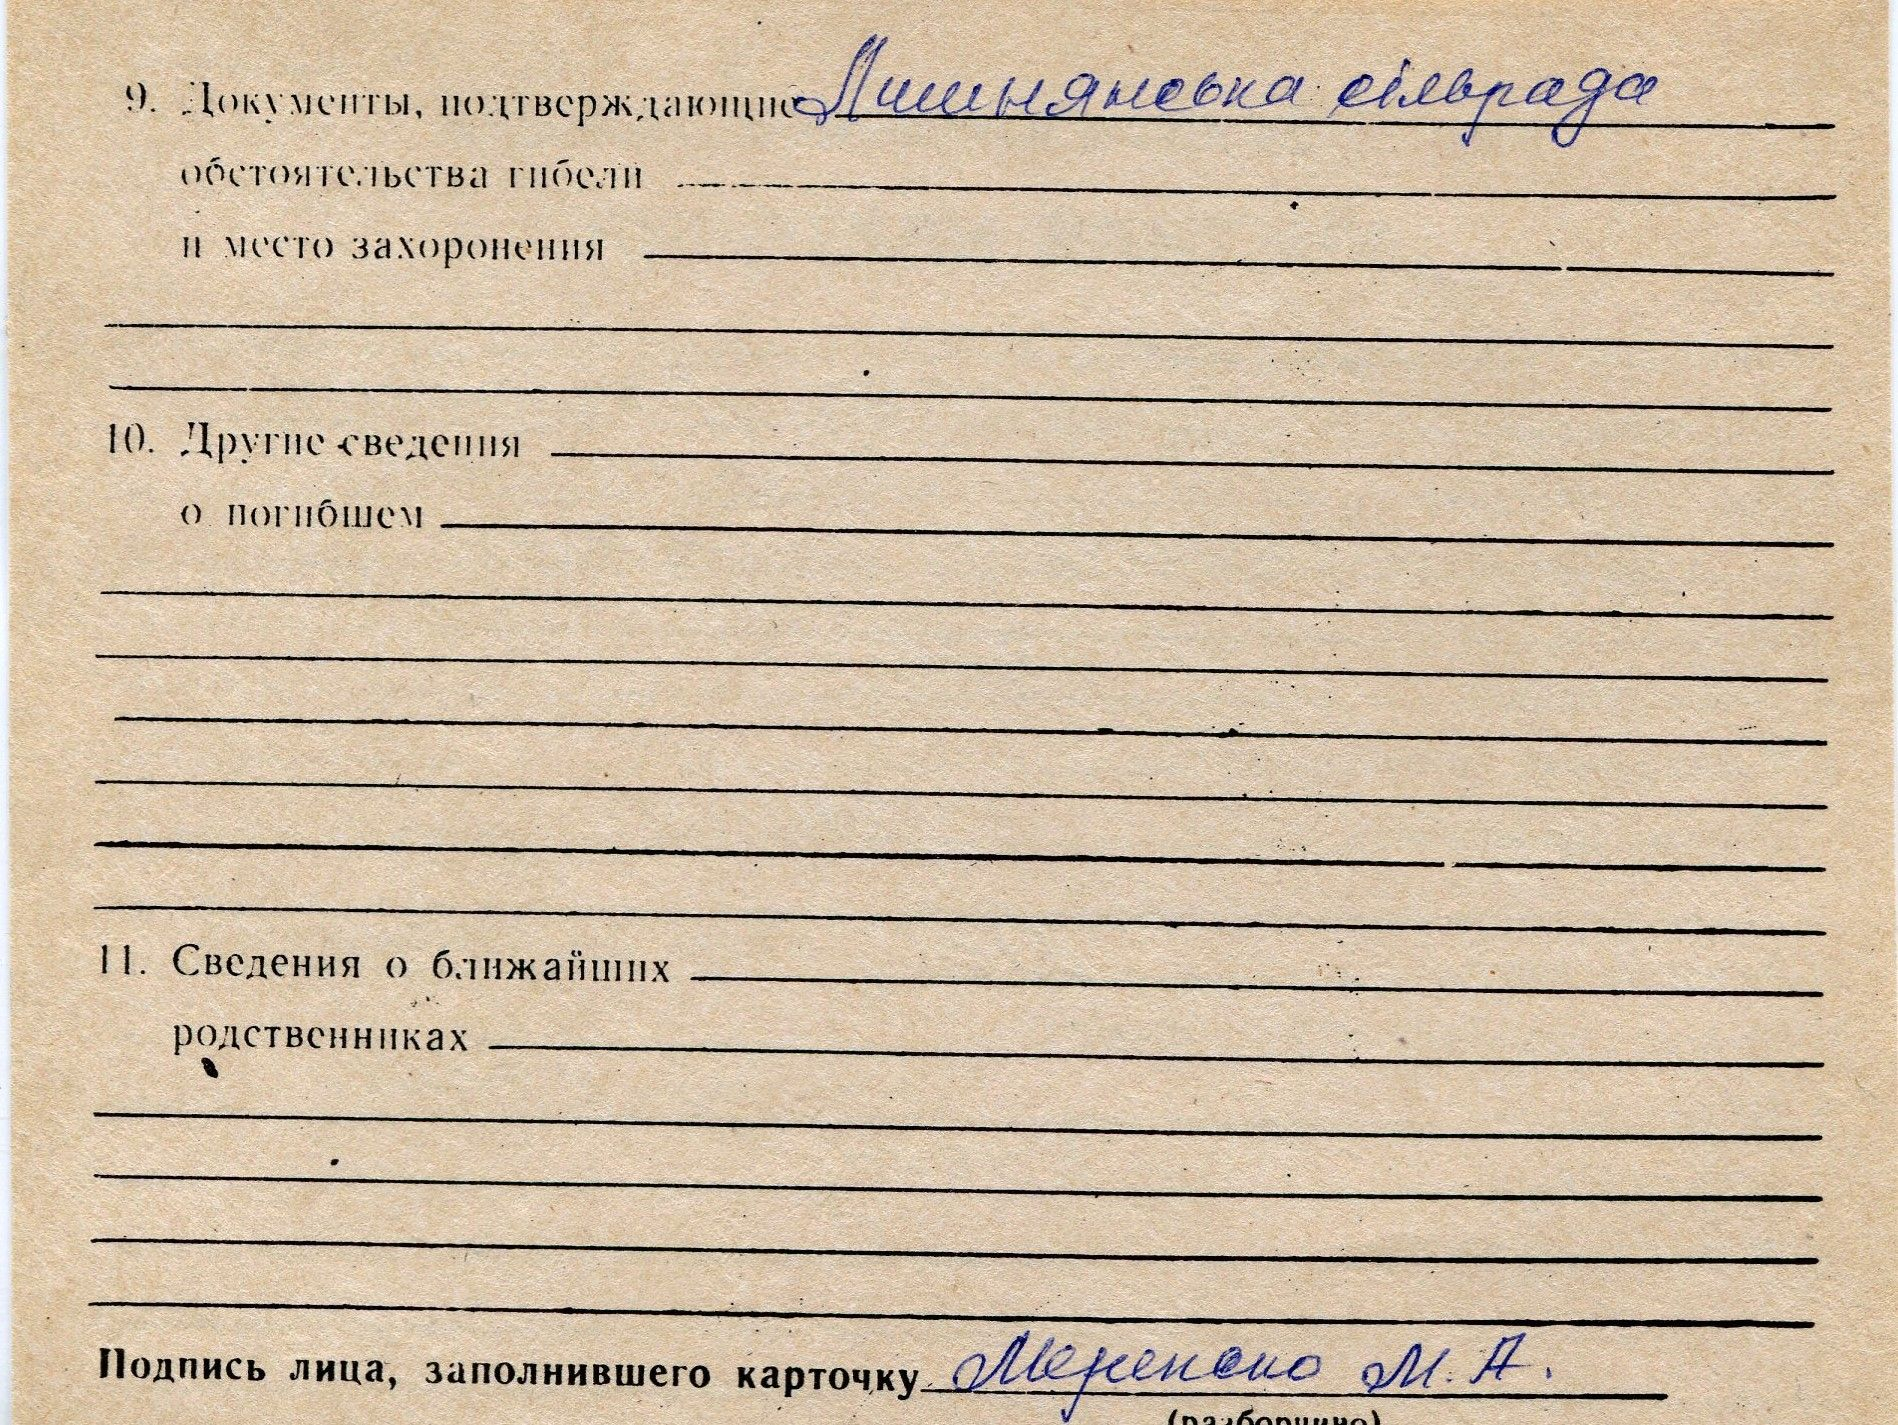 9. Документы, подтверждающие Лишнянська сільрада
обстоятельства гибели
и место захоронения
10. Другие сведения
о погибшем
11. Сведения о ближайших
родственниках
Подпись лица, заполнившего карточку М. А.
(разборчиво)